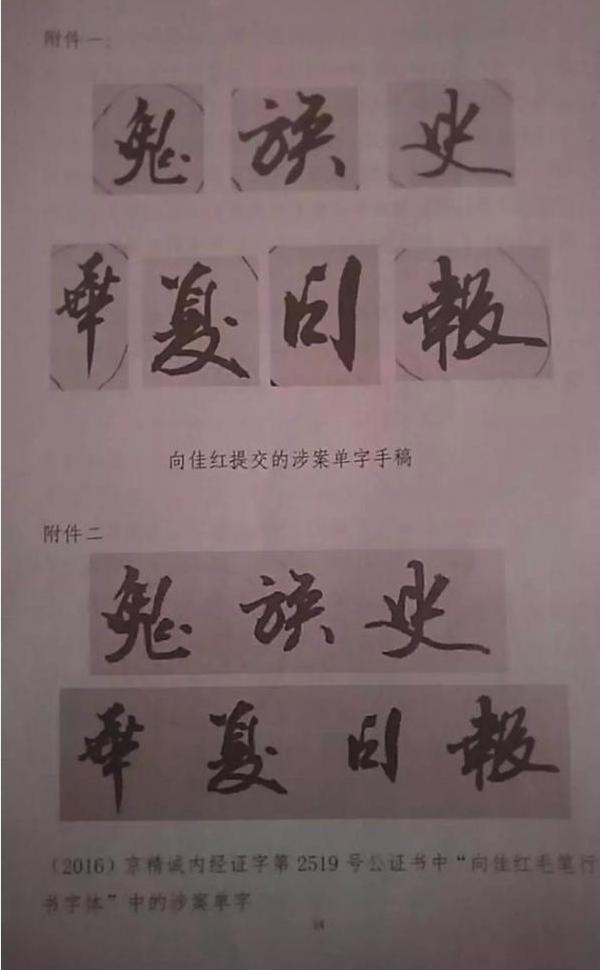 附件一:
鬼族史
華夏日報
向佳红提交的涉案单字手稿
附件二
鬼族史
華夏日報
(2016)京精诚内经证字第2519号公证书中“向佳红毛笔行
书字体”中的涉案单字